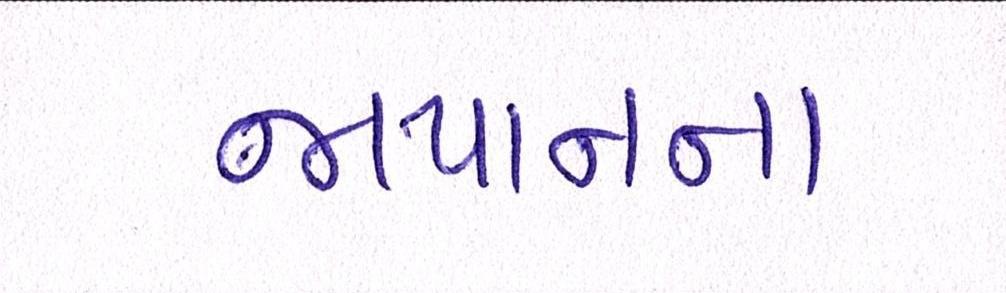 જાપાનના